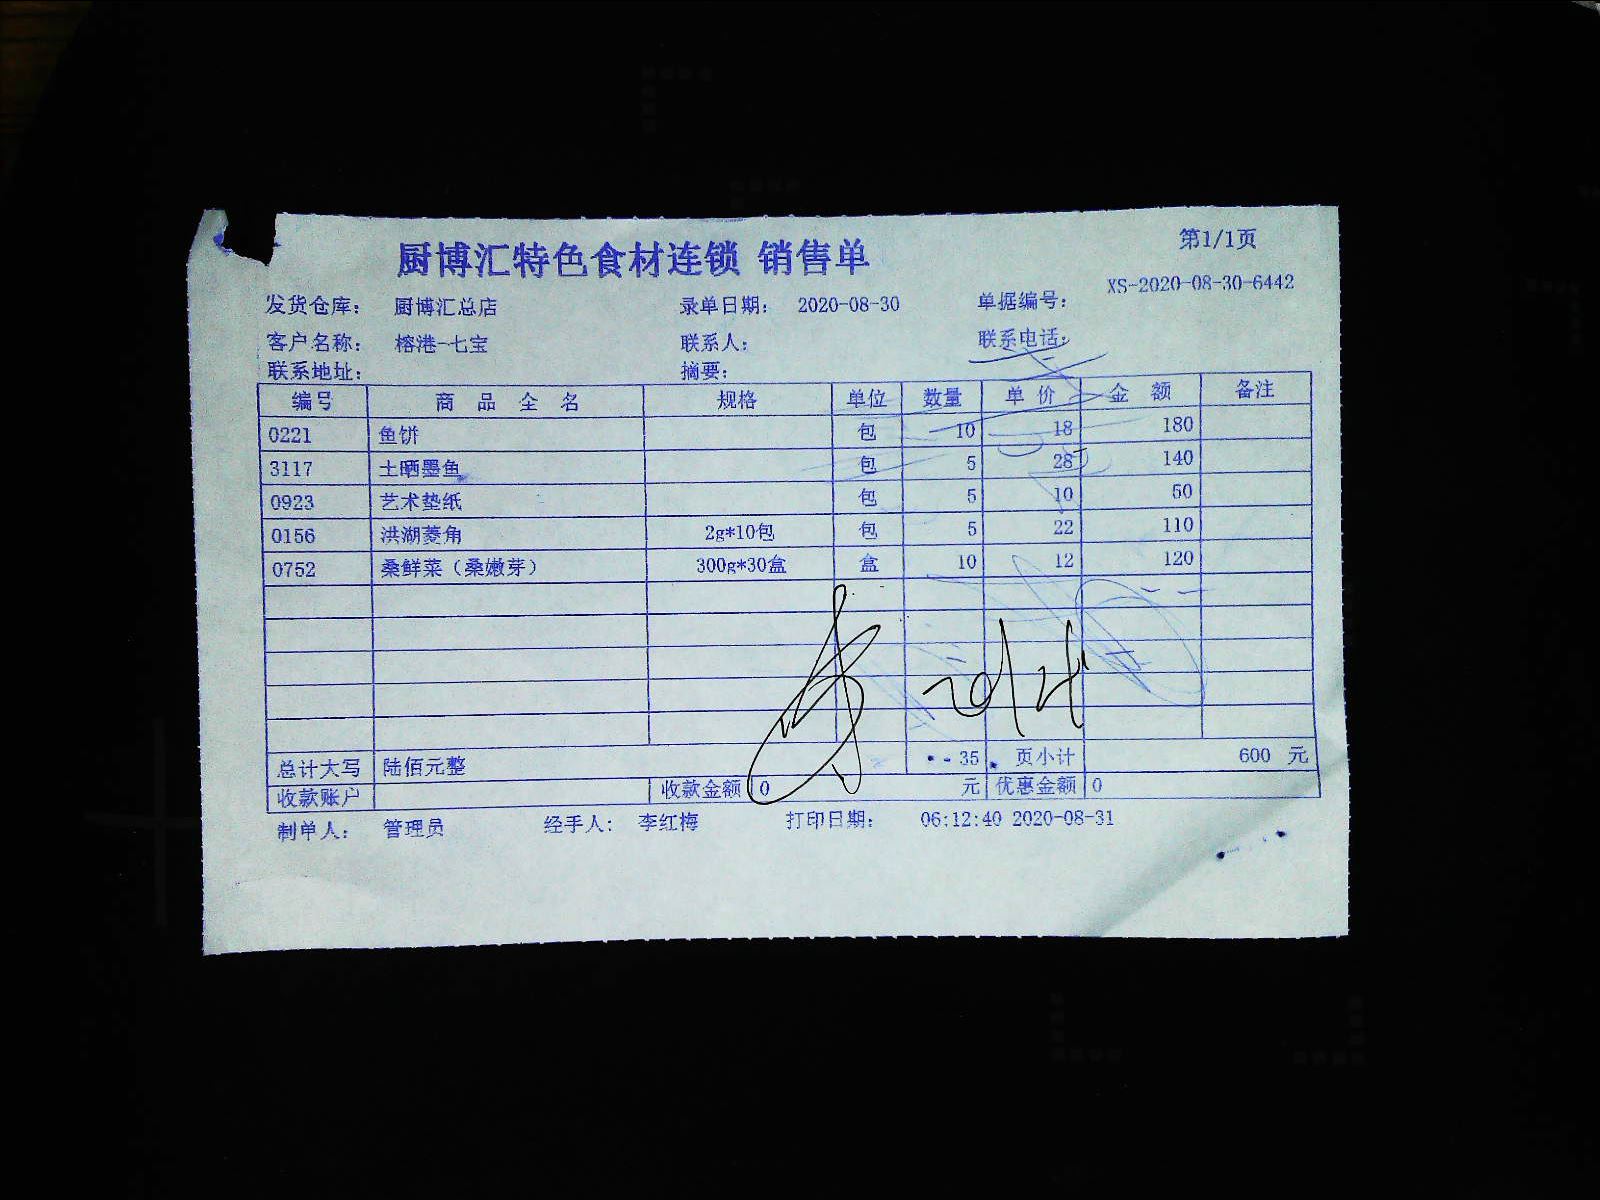 厨博汇特色食材连锁 销售单 第1/1页
发货仓库: 厨博汇总店 录单日期: 2020-08-30 单据编号: XS-2020-08-30-6442
客户名称: 榕港-七宝 联系人: 联系电话:
联系地址: 摘要:
编号 商品全名 规格 单位 数量 单价 金额 备注
0221 鱼饼 包 10 18 180
3117 土晒墨鱼 包 5 28 140
0923 艺术垫纸 包 5 10 50
0156 洪湖菱角 2g*10包 包 5 22 110
0752 桑鲜菜（桑嫩芽） 300g*30盒 盒 10 12 120
总计大写 陆佰元整 35 页小计 600 元
收款账户 收款金额 0 元 优惠金额 0
制单人: 管理员 经手人: 李红梅 打印日期: 06:12:40 2020-08-31